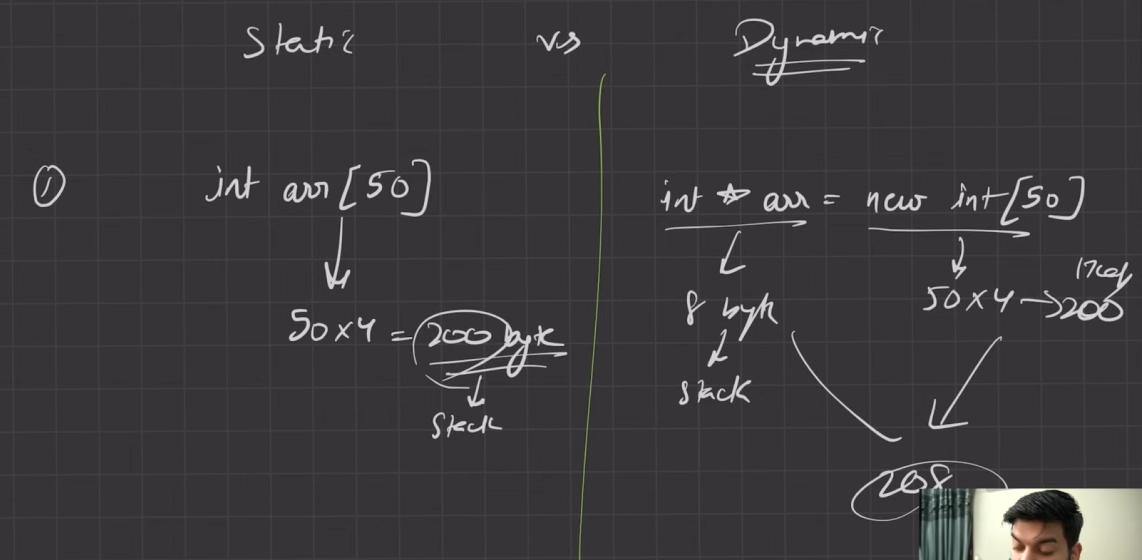 Static vs Dynamic
① int arr [50]
50 × 4 = 200 byte
Stack
int * arr = new int [50]
8 byte
Stack
50 × 4 → 200
Heap
208